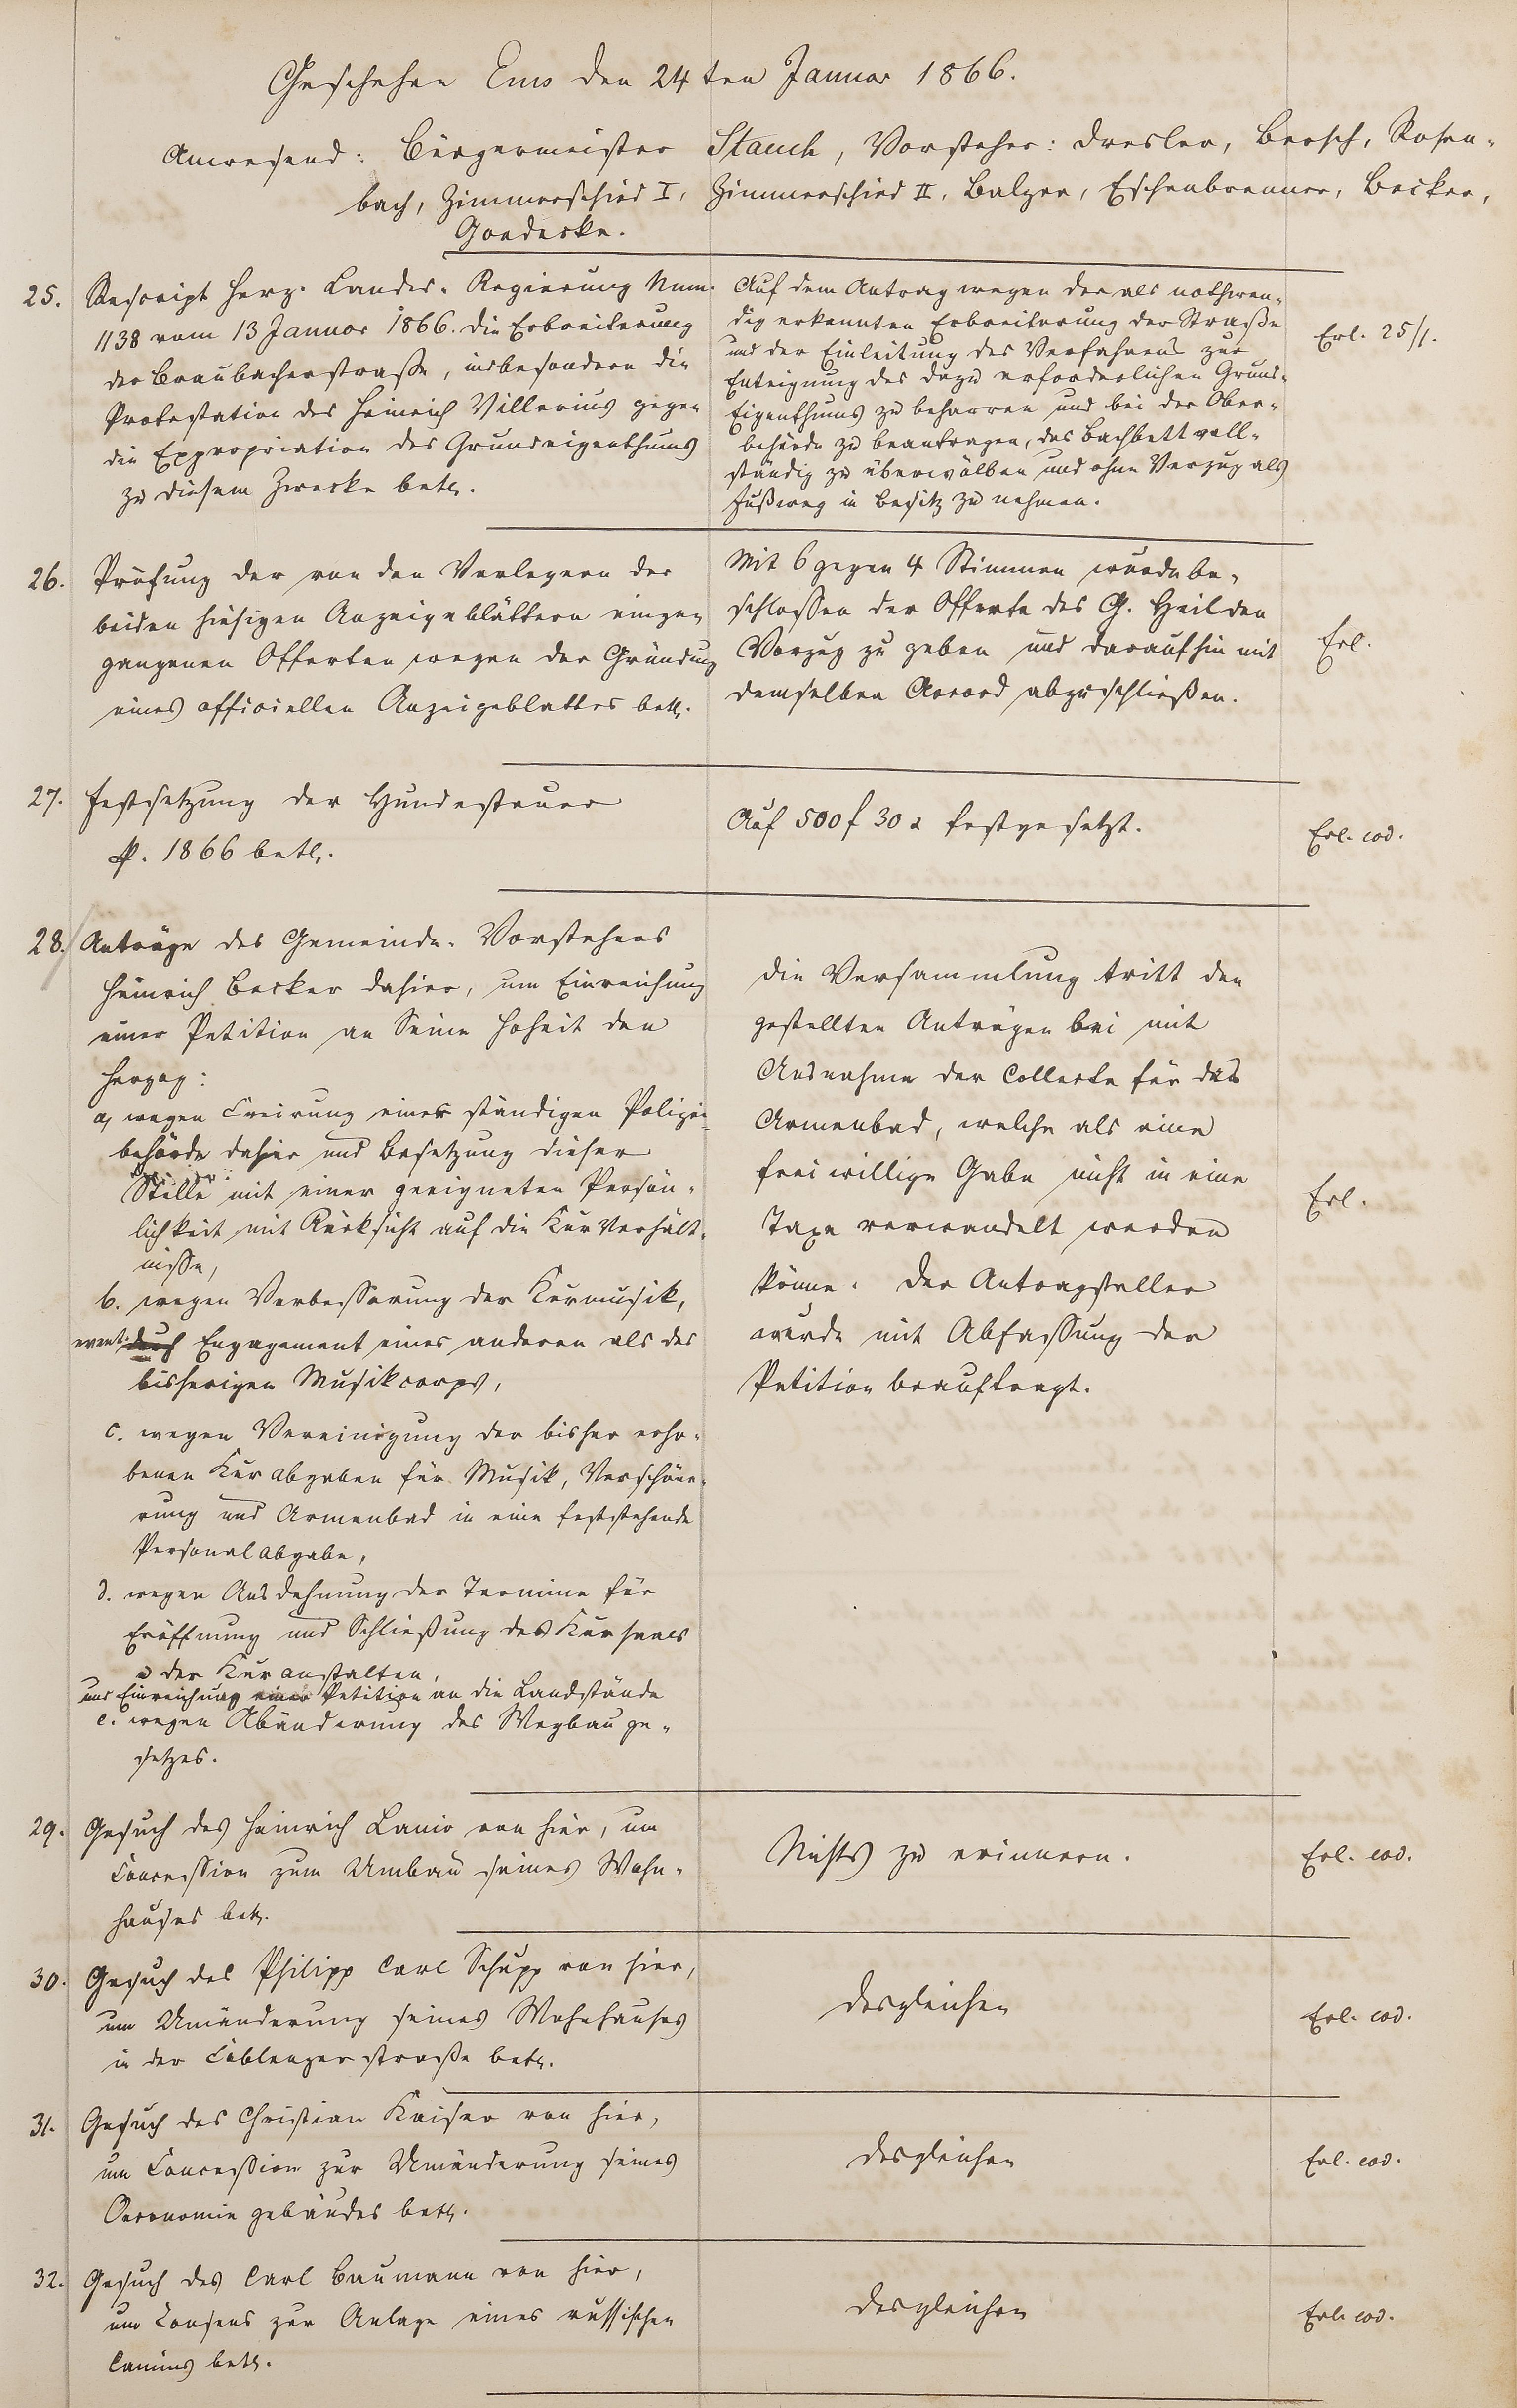 Geschehen Ems den 24ten Januar 1866.
Anwesend: Bürgermeister Stauch, Vorsteher: Dresler, Bersch, Rosen-
bach, Zimmerschied I, Zimmerschied II, Balzer, Eschenbrenner, Becker,
Goedecke.
25. Rescript Herz. Landes-Regierung Num.
1138 vom 13 Januar 1866. die Erbreiterung
der Braubacherstraße, insbesondere die
Protestation des Heinrich Villerius gegen
die Expropriation des Grundeigenthums
zu diesem Zwecke betr.
Auf dem Antrag wegen der als nothwen-
dig erkannten Erbreiterung der Straße
und der Einleitung des Verfahrens zur
Enteignung des dazu erforderlichen Grund-
Eigenthums zu beharren und bei der Ober-
behörde zu beantragen, das Bachbett voll-
ständig zu überwölben und ohne Verzug als
Fußweg in Besitz zu nehmen.
Erl. 25/1.
26. Prüfung der von den Verlegern der
beiden hiesigen Anzeigeblättern einge-
gangenen Offerten wegen der Gründung
eines officiellen Anzeigeblattes betr.
Mit 6 gegen 4 Stimmen wurde be-
schlossen der Offerte des G. Heil den
Vorzug zu geben und daraufhin mit
demselben Accord abzuschließen.
Erl.
27. Festsetzung der Hundesteuer
p. 1866 betr.
Auf 500 f 30 x festgesetzt.
Erl. eod.
28. Anträge des Gemeinde-Vorstehers
Heinrich Becker dahier, um Einreichung
einer Petition an Seine Hoheit den
Herzog:
a, wegen Creirung einer ständigen Polizei-
behörde dahier und Besetzung dieser
Stelle mit einer geeigneten Persön-
lichkeit mit Rücksicht auf die Kurverhält-
nisse,
b. wegen Verbesserung der Kurmusik,
event. durch Engagement eines anderen als des
bisherigen Musikcorps,
c. wegen Vereinigung der bisher erho-
benen Kurabgaben für Musik, Verschöne-
rung und Armenbad in eine feststehende
Personalabgabe,
d. wegen Ausdehnung der Termine für
Eröffnung und Schließung des Kursaals
u der Kuranstalten,
und Einreichung einer Petition an die Landstände
e. wegen Abänderung des Wegbauge-
setzes.
Die Versammlung tritt den
gestellten Anträgen bei mit
Ausnahme der Collecte für das
Armenbad, welche als eine
freiwillige Gabe nicht in eine
Taxe verwandelt werden
könne. Der Antragsteller
wurde mit Abfassung der
Petition beauftragt.
Erl.
29. Gesuch des Heinrich Lanio von hier, um
Concession zum Umbau seines Wohn-
hauses betr.
Nichts zu erinnern.
Erl. eod.
30. Gesuch des Philipp Carl Schupp von hier,
um Umänderung seines Wohnhauses
in der Coblenzerstraße betr.
desgleichen
Erl. eod.
31. Gesuch des Christian Kaiser von hier,
um Concession zur Umänderung seines
Oeconomiegebäudes betr.
desgleichen
Erl. eod.
32. Gesuch des Carl Baumann von hier,
um Consens zur Anlage eines russischen
Camins betr.
desgleichen
Erl. eod.